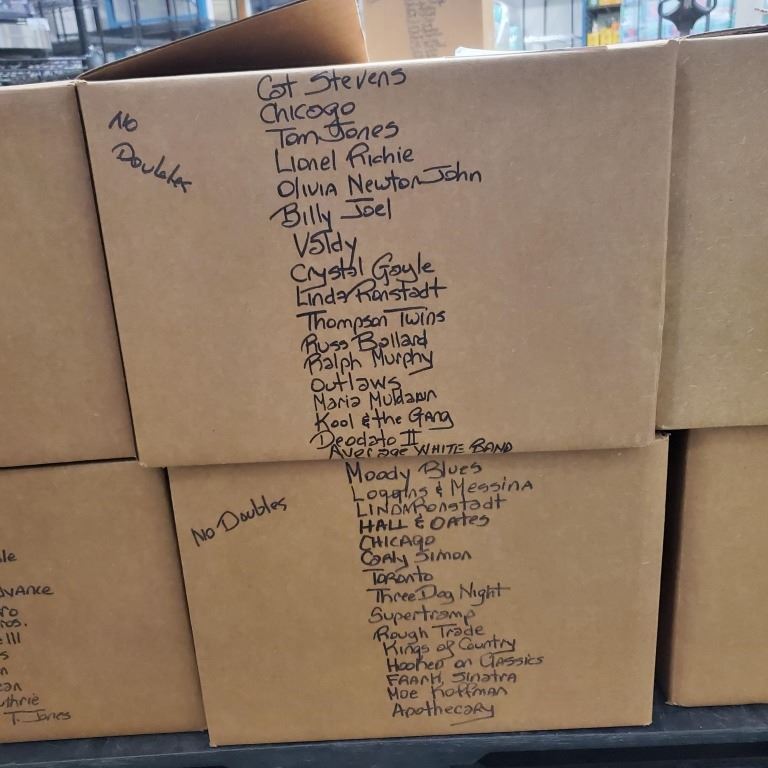 No
Doubles
Cat Stevens
Chicago
Tom Jones
Lionel Richie
Olivia Newton John
Billy Joel
Valdy
Crystal Gayle
Linda Ronstadt
Thompson Twins
Russ Ballard
Ralph Murphy
Outlaws
Maria Muldaur
Kool & the Gang
Deodato II
Average WHITE BAND
No Doubles
Moody Blues
Loggins & Messina
LINDA Ronstadt
HALL & OATES
CHICAGO
Carly Simon
Toronto
Three Dog Night
Supertramp
Rough Trade
Kings of Country
Hooked on Classics
FRANK SINATRA
Moe Koffman
Apothecary
T. Jones